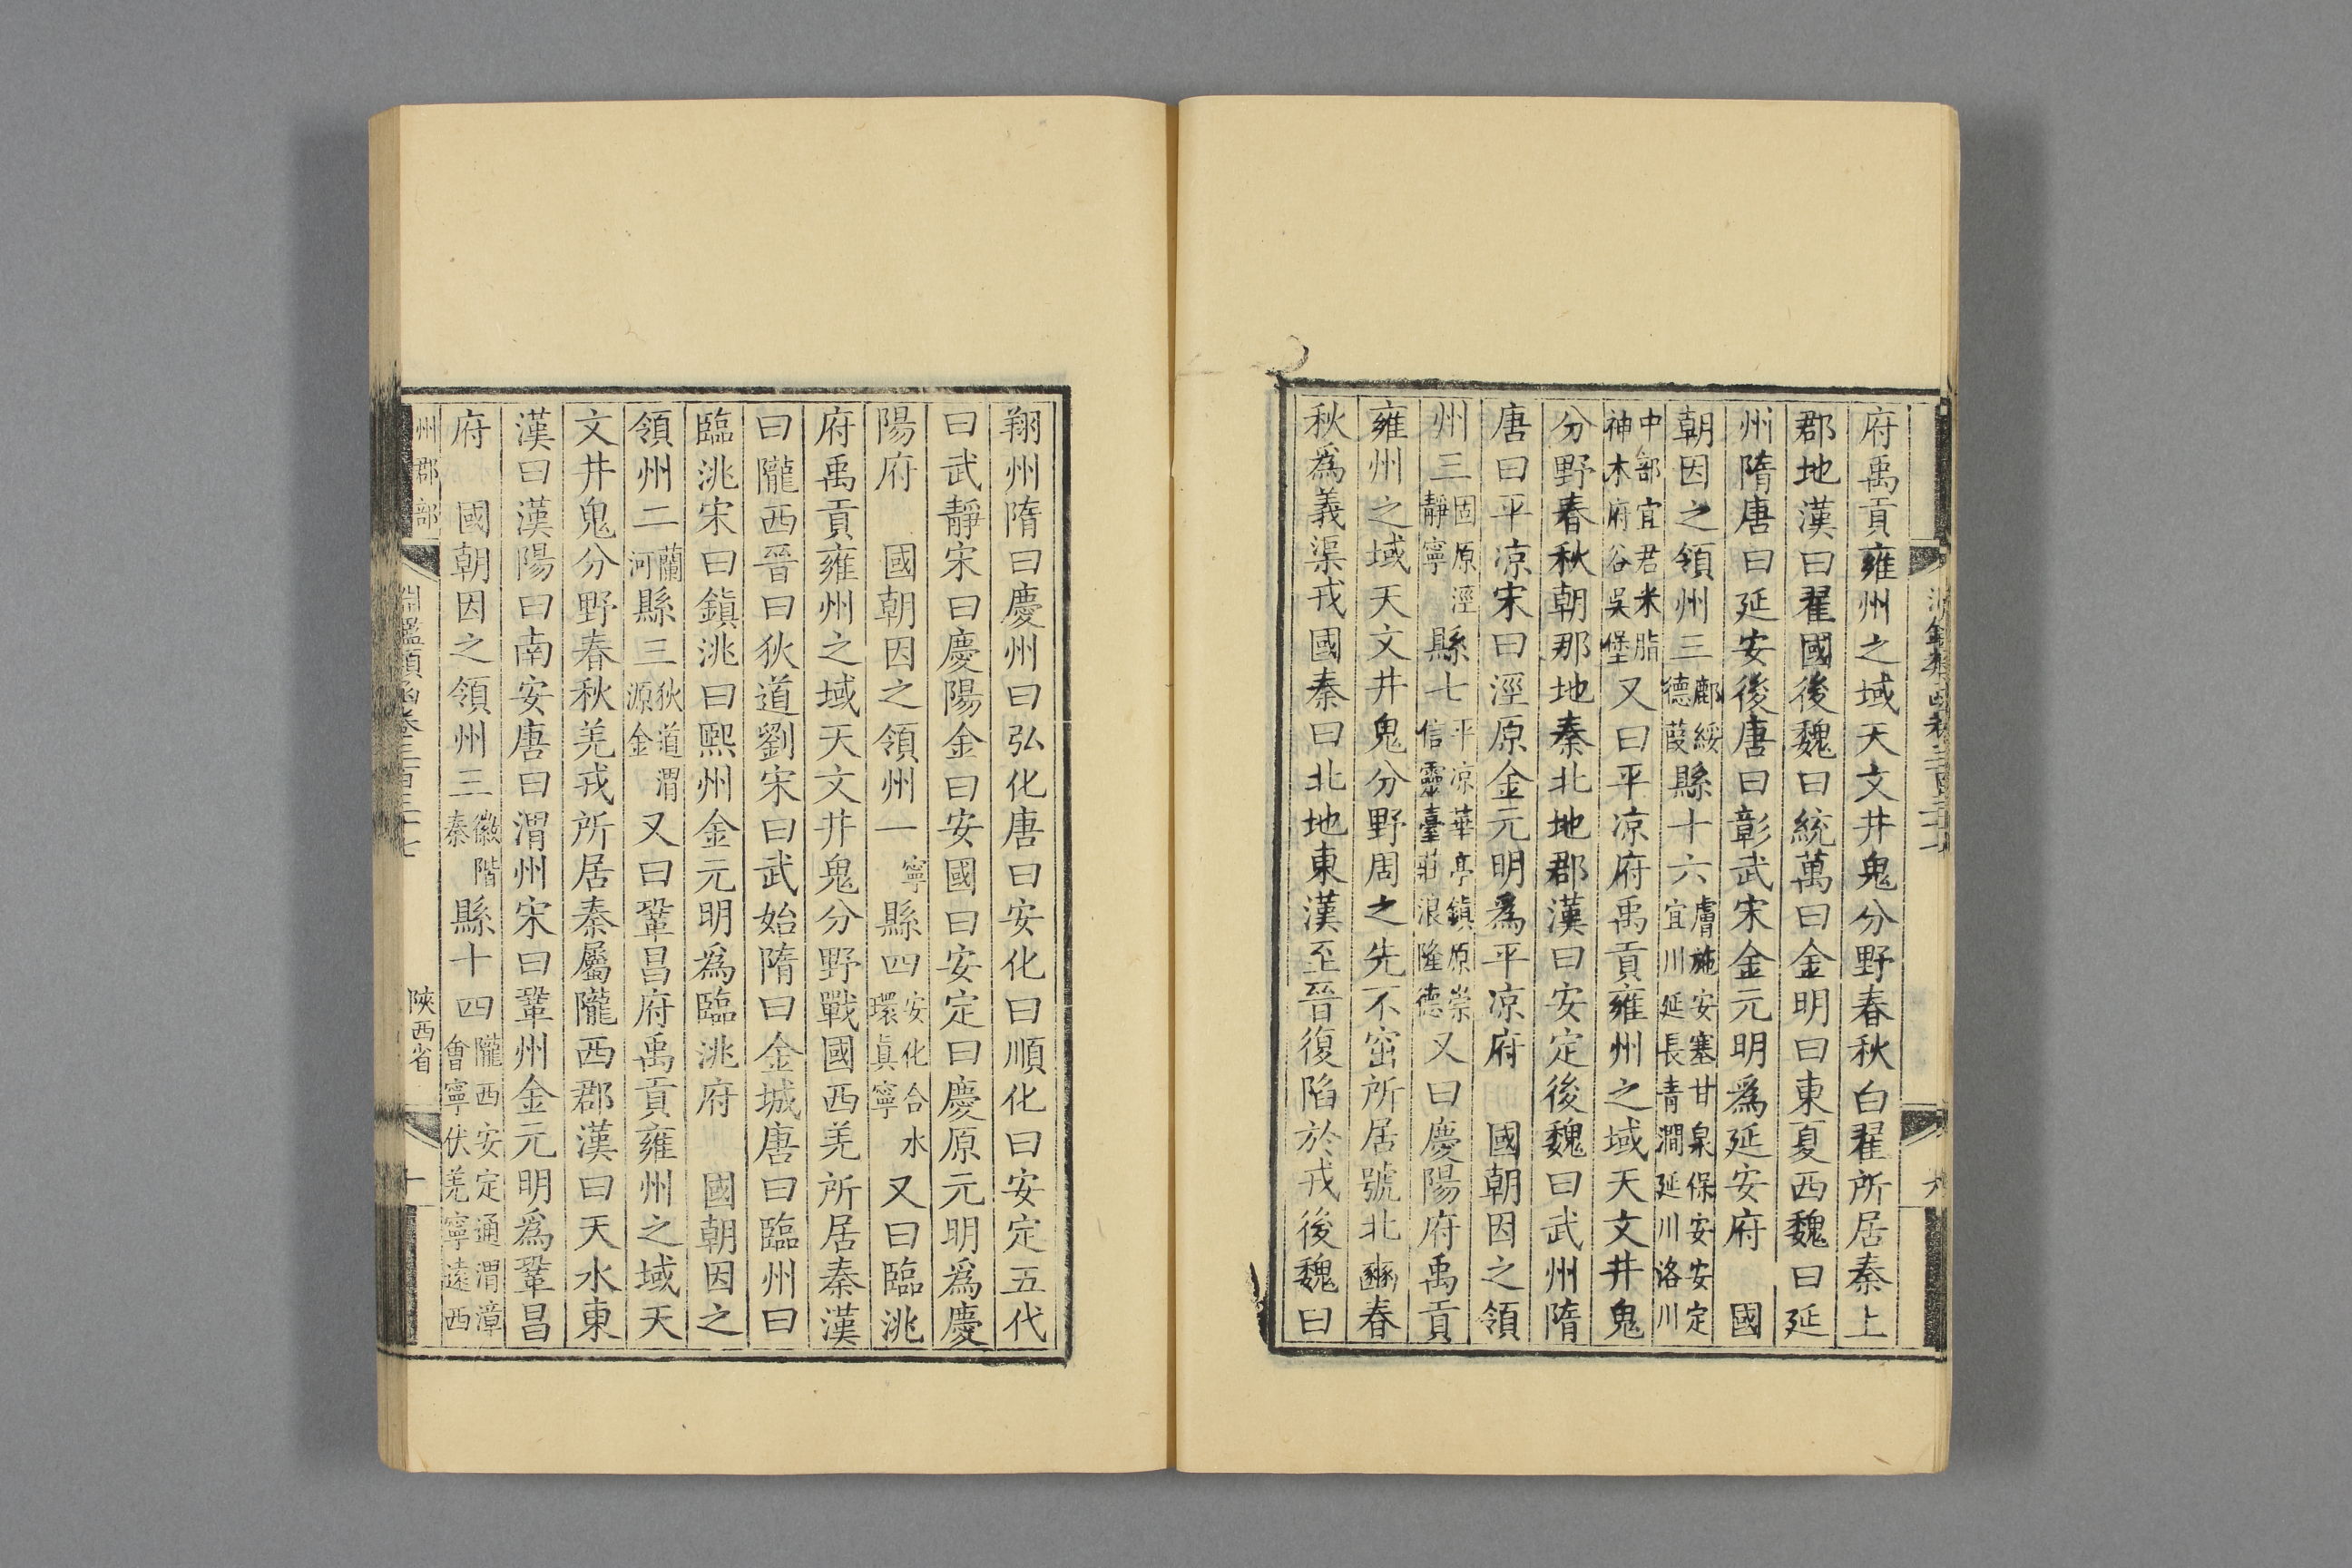 府禹貢雍州之域天文井鬼分野春秋白翟所居秦上
郡地漢曰翟國後魏曰統萬曰金明曰東夏西魏曰延
州隋唐曰延安後唐曰彰武宋金元明爲延安府 國
朝因之領州三鄜綏德葭縣十六膚施安塞甘泉保安安定宜川延長青澗延川洛川
中部宜君米脂神木府谷吳堡又曰平凉府禹貢雍州之域天文井鬼
分野春秋朝那地秦北地郡漢曰安定後魏曰武州隋
唐曰平凉宋曰涇原金元明爲平凉府 國朝因之領
州三固原涇靜寧縣七平凉華亭鎮原崇信靈臺莊浪隆德又曰慶陽府禹貢
雍州之域天文井鬼分野周之先不窋所居號北豳春
秋爲義渠戎國秦曰北地東漢至晉復陷於戎後魏曰
翔州隋曰慶州曰弘化唐曰安化曰順化曰安定五代
曰武靜宋曰慶陽金曰安國曰安定曰慶原元明爲慶
陽府 國朝因之領州一寧縣四安化合水環眞寧又曰臨洮
府禹貢雍州之域天文井鬼分野戰國西羌所居秦漢
曰隴西晉曰狄道劉宋曰武始隋曰金城唐曰臨州曰
臨洮宋曰鎮洮曰熙州金元明爲臨洮府 國朝因之
領州二蘭河縣三狄道渭源金又曰鞏昌府禹貢雍州之域天
文井鬼分野春秋羌戎所居秦屬隴西郡漢曰天水東
漢曰漢陽曰南安唐曰渭州宋曰鞏州金元明爲鞏昌
府 國朝因之領州三徽階秦縣十四隴西安定通渭漳會寧伏羌寧遠西
州郡部 淵鑑類函卷三百三十七 陝西省 十